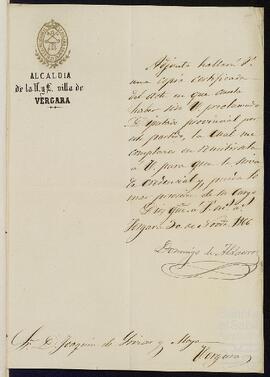 ALCALDIA
de la N. y L. villa de
VERGARA
Adjunta hallará V.
una copia certificada
del Acta en que consta
haber sido V. proclamado
Diputado provincial por
este partido, la cual me
complazco en remitirsela
á V. para que le sirva
de credencial y pueda to-
mar posesion de su cargo
Dios gue. á V. ms. as.
Vergara 30 de 1866
Domingo de
Sr. D. Joaquin de Yrizar y Moya
Vergara